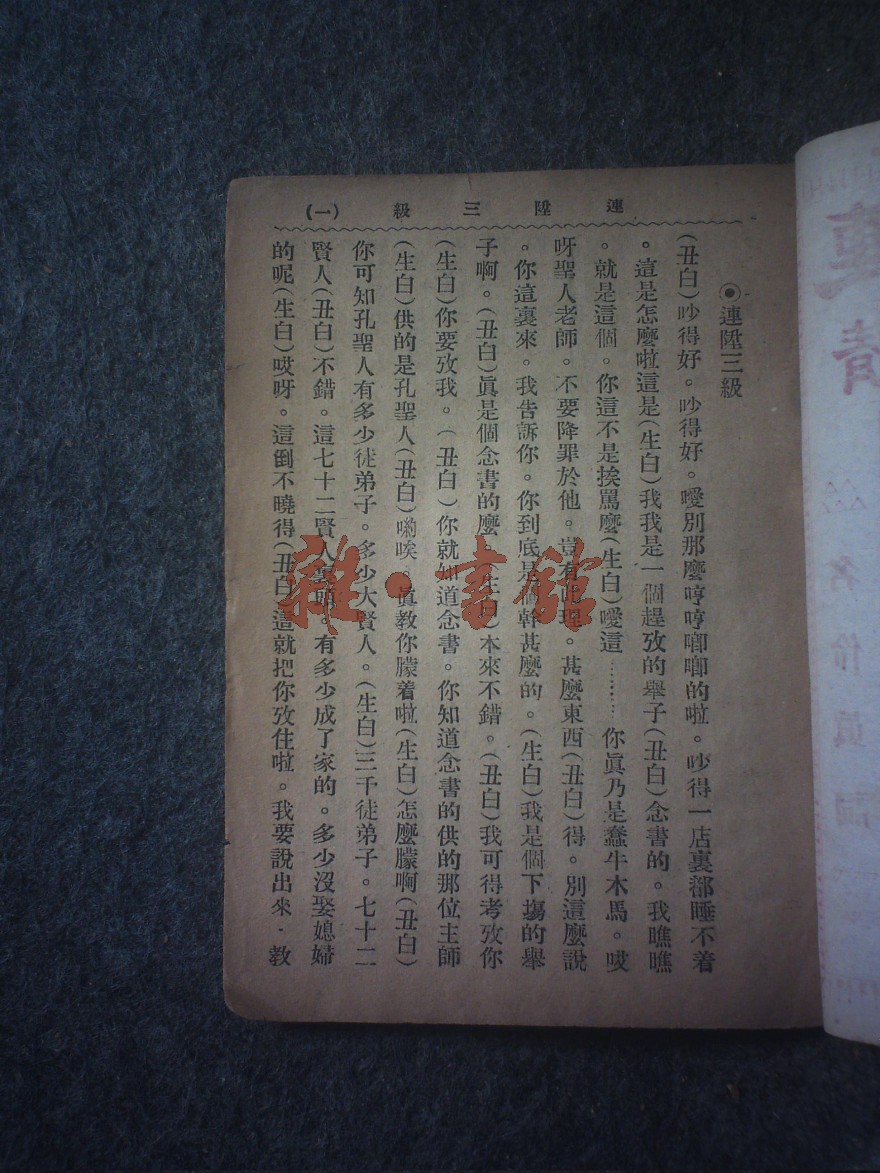 連陞三級 (一)
◉連陞三級
(丑白)吵得好。吵得好。噯別那麼哼哼唧唧的啦。吵得一店裏都睡不着
。這是怎麼啦這是(生白)我我是一個趕攷的舉子(丑白)念書的。我瞧瞧
。就是這個。你這不是挨罵麼(生白)噯這………你眞乃是蠢牛木馬。哎
呀聖人老師。不要降罪於他。豈有此理。甚麼東西(丑白)得。別這麼說
。你這裏來。我告訴你。你到底是個幹甚麼的。(生白)我是個下塲的舉
子啊。(丑白)眞是個念書的麼(生白)本來不錯。(丑白)我可得考攷你
(生白)你要攷我。(丑白)你就知道念書。你知道念書的供的那位主師
(生白)供的是孔聖人(丑白)喲唉。眞教你朦着啦(生白)怎麼朦啊(丑白)
你可知孔聖人有多少徒弟子。多少大賢人。(生白)三千徒弟子。七十二
賢人(丑白)不錯。這七十二賢人裏頭。有多少成了家的。多少沒娶媳婦
的呢(生白)哎呀。這倒不曉得(丑白)這就把你攷住啦。我要說出來．教
雜·書館
名伶眞詞